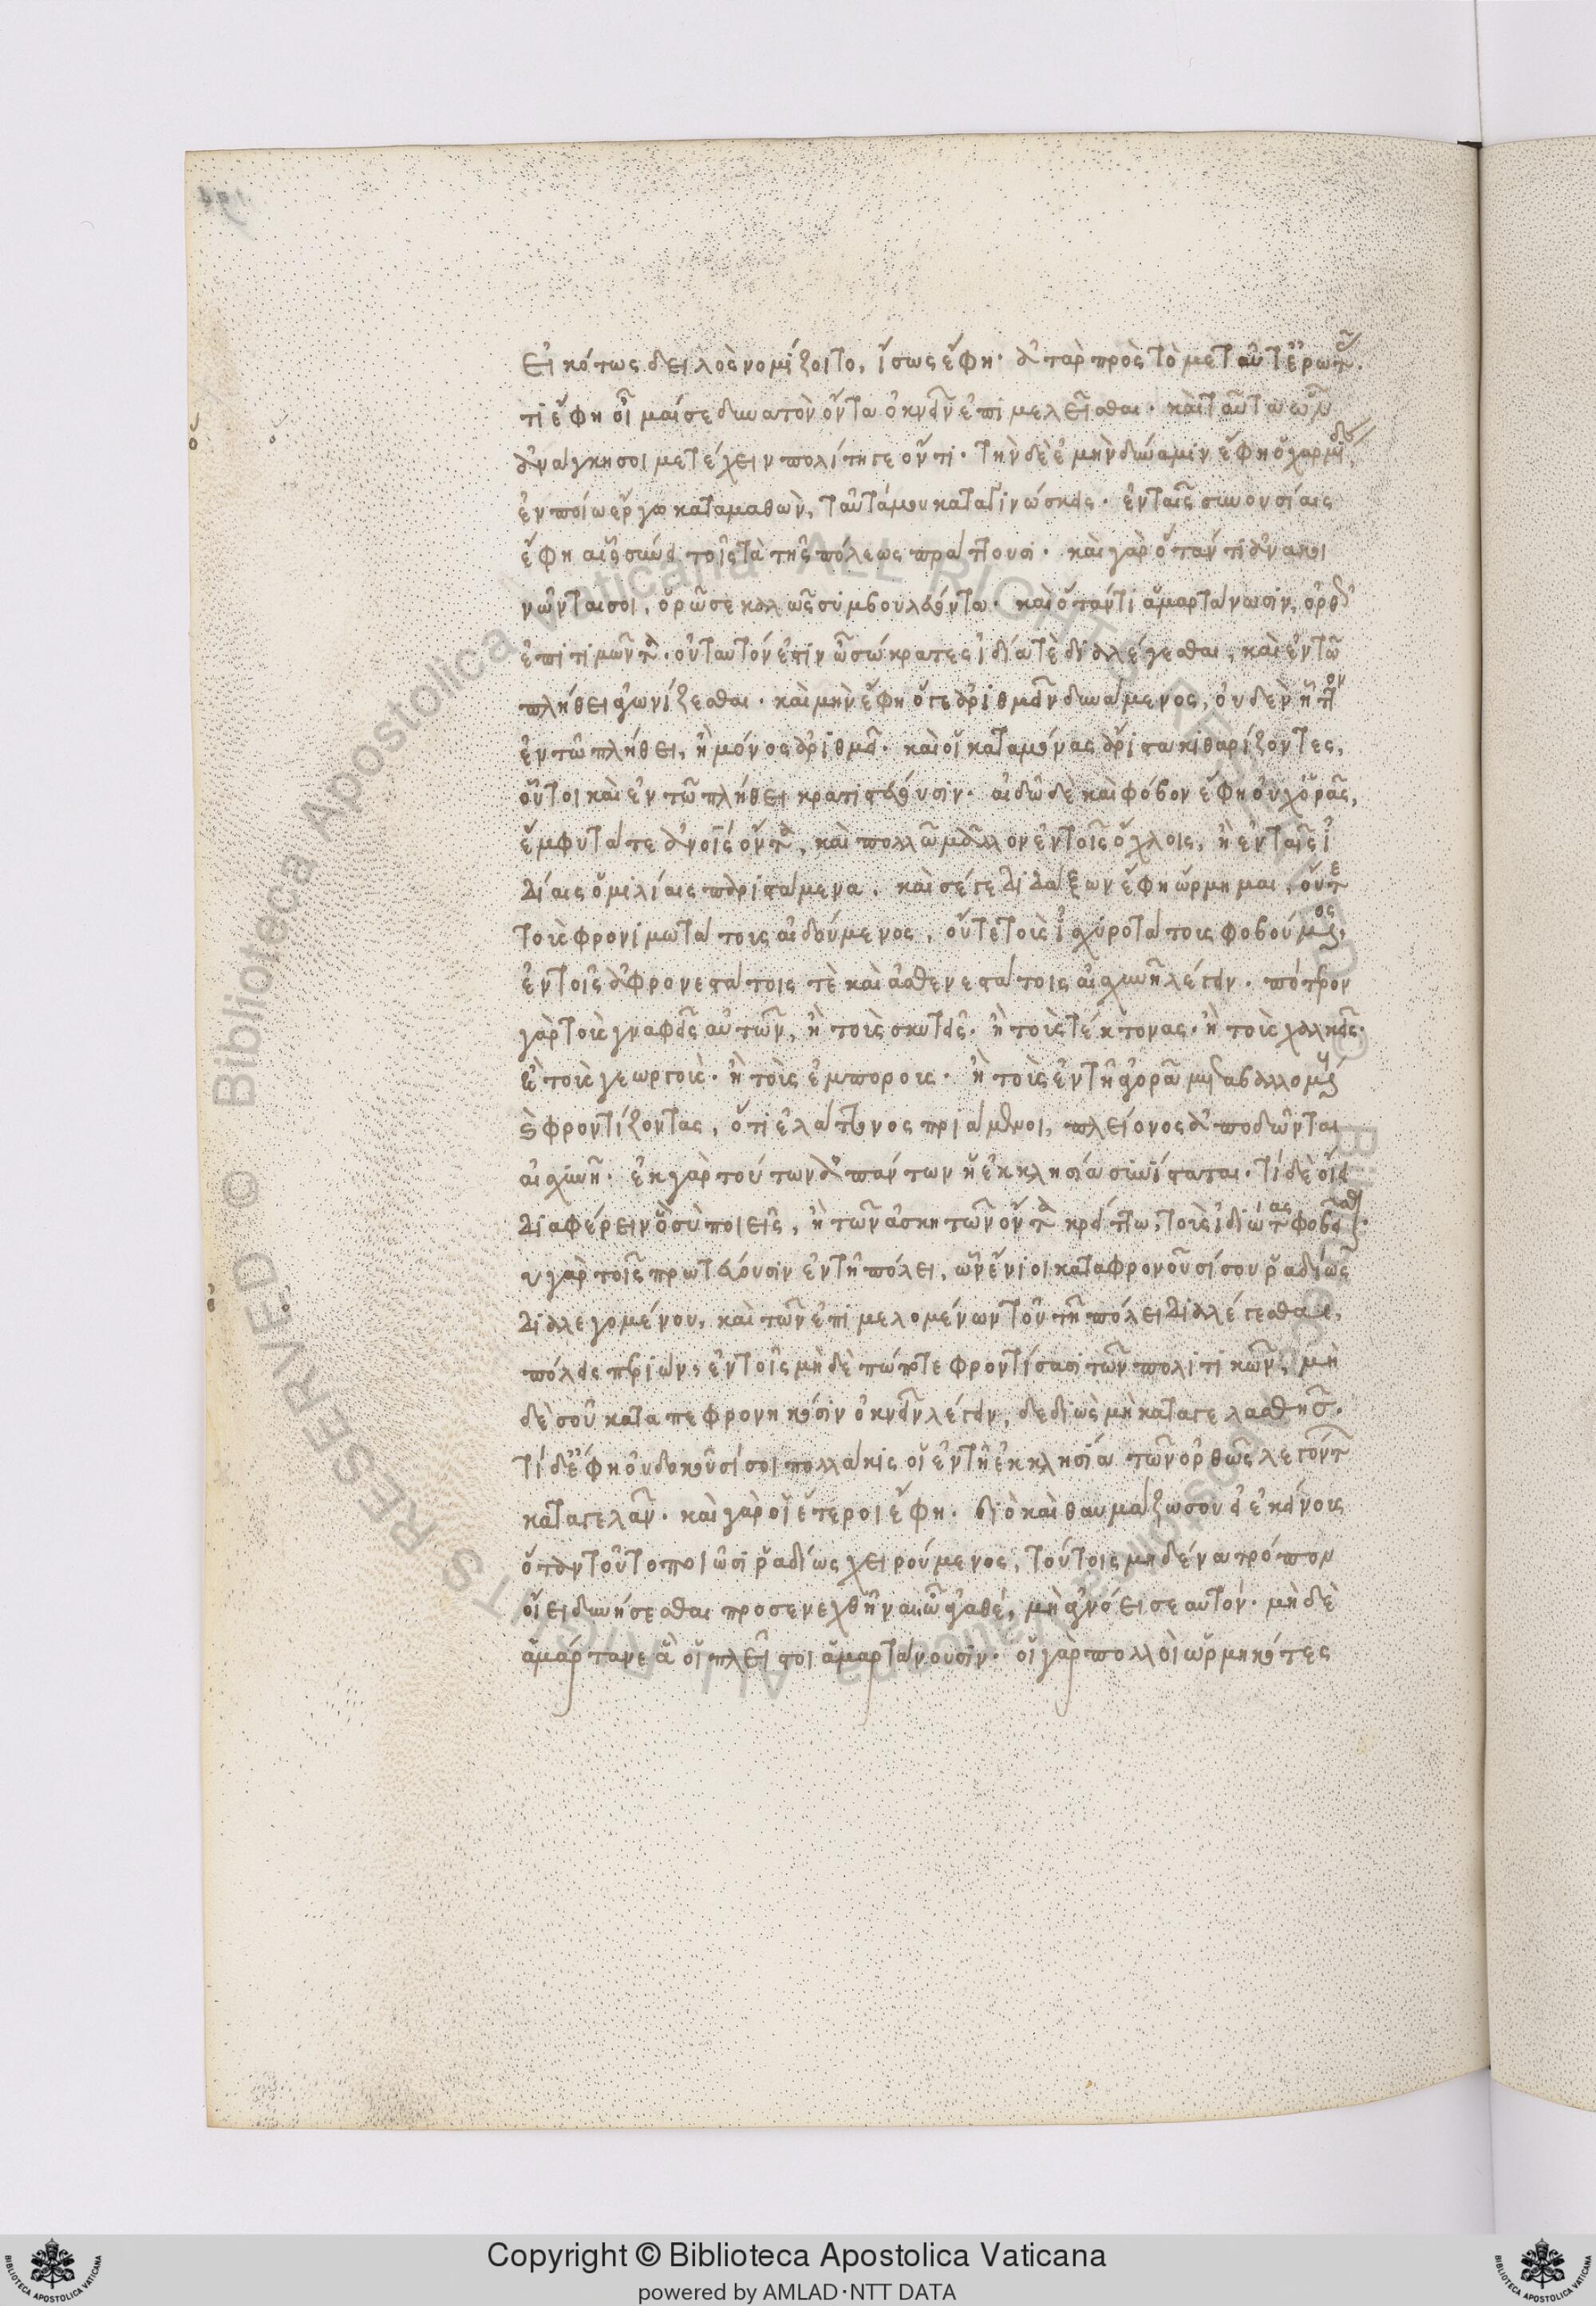 εἰκότως δειλὸς νομίζοιτο, ἴσως ἔφη· ἀτὰρ πρὸς τὸ μεταῦτ ἐρωτᾷς.
τί ἔφη ὅτι μαί σε δυνατὸν ὄντα ὀκνεῖν ἐπιμελεῖσθαι· καὶ ταῦτα ὧν
ἀνάγκη σοι μετέχειν πολίτη γε ὄντι· τὴν δὲ ἐμὴν δύναμιν ἔφη ὁ χαρμίδης,
ἐν ποίῳ ἔργῳ καταμαθὼν, ταῦτά μου καταγινώσκεις· ἐν ταῖς συνουσίαις
ἔφη αἷς σύνει τοῖς τὰ τῆς πόλεως πράττουσι· καὶ γὰρ ὅταν τι ἀνακοι
νῶνταί σοι, ὁρῶ σε καλῶς συμβουλεύοντα· καὶ ὅταν τι ἁμαρτάνωσιν, ὀρθῶς
ἐπιτιμῶντα· οὐ ταυτόν ἐστιν ὦ σώκρατες ἰδίᾳ τὲ διαλέγεσθαι, καὶ ἐν τῷ
πλήθει ἀγωνίζεσθαι· καὶ μὴν ἔφη ὅ γε ἀριθμεῖν δυνάμενος, οὐδὲν ἧττον
ἐν τῷ πλήθει, ἢ μόνος ἀριθμεῖ· καὶ οἱ καταμόνας ἄριστα κιθαρίζοντες,
οὗτοι καὶ ἐν τῷ πλήθει κρατιστεύουσιν· αἰδῶ δὲ καὶ φόβον ἔφη οὐχ ὁρᾷς,
ἔμφυτά τε ἀνοις ὄντα, καὶ πολλῷ μᾶλλον ἐν τοῖς ὄχλοις, ἢ ἐν ταῖς ἰ
δίαις ὁμιλίαις παριστάμενα. καὶ σέ γε διδάξων ἔφη ὥρμημαι, οὔτε
τοὺς φρονιμωτάτους αἰδούμενος, οὔτε τοὺς ἰσχυροτάτους φοβούμενος,
ἐν τοῖς ἀφρονεστάτοις τὲ καὶ ἀσθενεστάτοις αἰσχύνῃ λέγειν· πότερον
γὰρ τοὺς γναφεῖς αὐτῶν, ἢ τοὺς σκυτεῖς· ἢ τοὺς τέκτονας· ἢ τοὺς χαλκεῖς·
ἢ τοὺς γεωργοὺς· ἢ τοὺς ἐμπόρους· ἢ τοὺς ἐν τῇ ἀγορᾷ μεταβαλλομένους
καὶ φροντίζοντας, ὅτι ἐλάττονος πριάμενοι, πλείονος ἀποδῶνται
αἰσχύνῃ· ἐκ γὰρ τούτων ἁπάντων ἡ ἐκκλησία συνίσταται· τί δὲ οἴει
διαφέρειν ὃ σὺ ποιεῖς, ἢ τῶν ἀσκητῶν ὄντα κρείττω, τοὺς ἰδιώτας φοβεῖσθαι·
υ γὰρ τοῖς πρωτεύουσιν ἐν τῇ πόλει, ὧν ἔνιοι καταφρονοῦσί σου ῥαδίως
διαλεγομένου, καὶ τῶν ἐπιμελομένων τοῦ τῇ πόλει διαλέγεσθαι,
πολὺ περιὼν, ἐν τοῖς μὴ δὲ πώποτε φροντίσασι τῶν πολιτικῶν, μὴ
δὲ σοῦ καταπεφρονηκόσιν ὀκνεῖν λέγειν, δεδιὼς μὴ καταγελασθῇς.
τί δ ἔφη οὐ δοκοῦσί σοι πολλάκις οἱ ἐν τῇ ἐκκλησίᾳ τῶν ὀρθῶς λεγόντων
καταγελᾶν· καὶ γὰρ οἱ ἕτεροι ἔφη. διὸ καὶ θαυμάζω σου εἰ ἐκείνους
ὅταν τοῦτο ποιῶσι ῥαδίως χειρούμενος, τούτοις μηδένα τρόπον
οἴει δυνήσεσθαι προσενεχθῆναι ὦ ἀγαθέ, μὴ ἀγνόει σεαυτόν· μὴ δὲ
ἁμάρτανε ἃ οἱ πλεῖστοι ἁμαρτάνουσιν· οἱ γὰρ πολλοὶ ὡρμηκότες
Copyright © Biblioteca Apostolica Vaticana
powered by AMLAD·NTT DATA